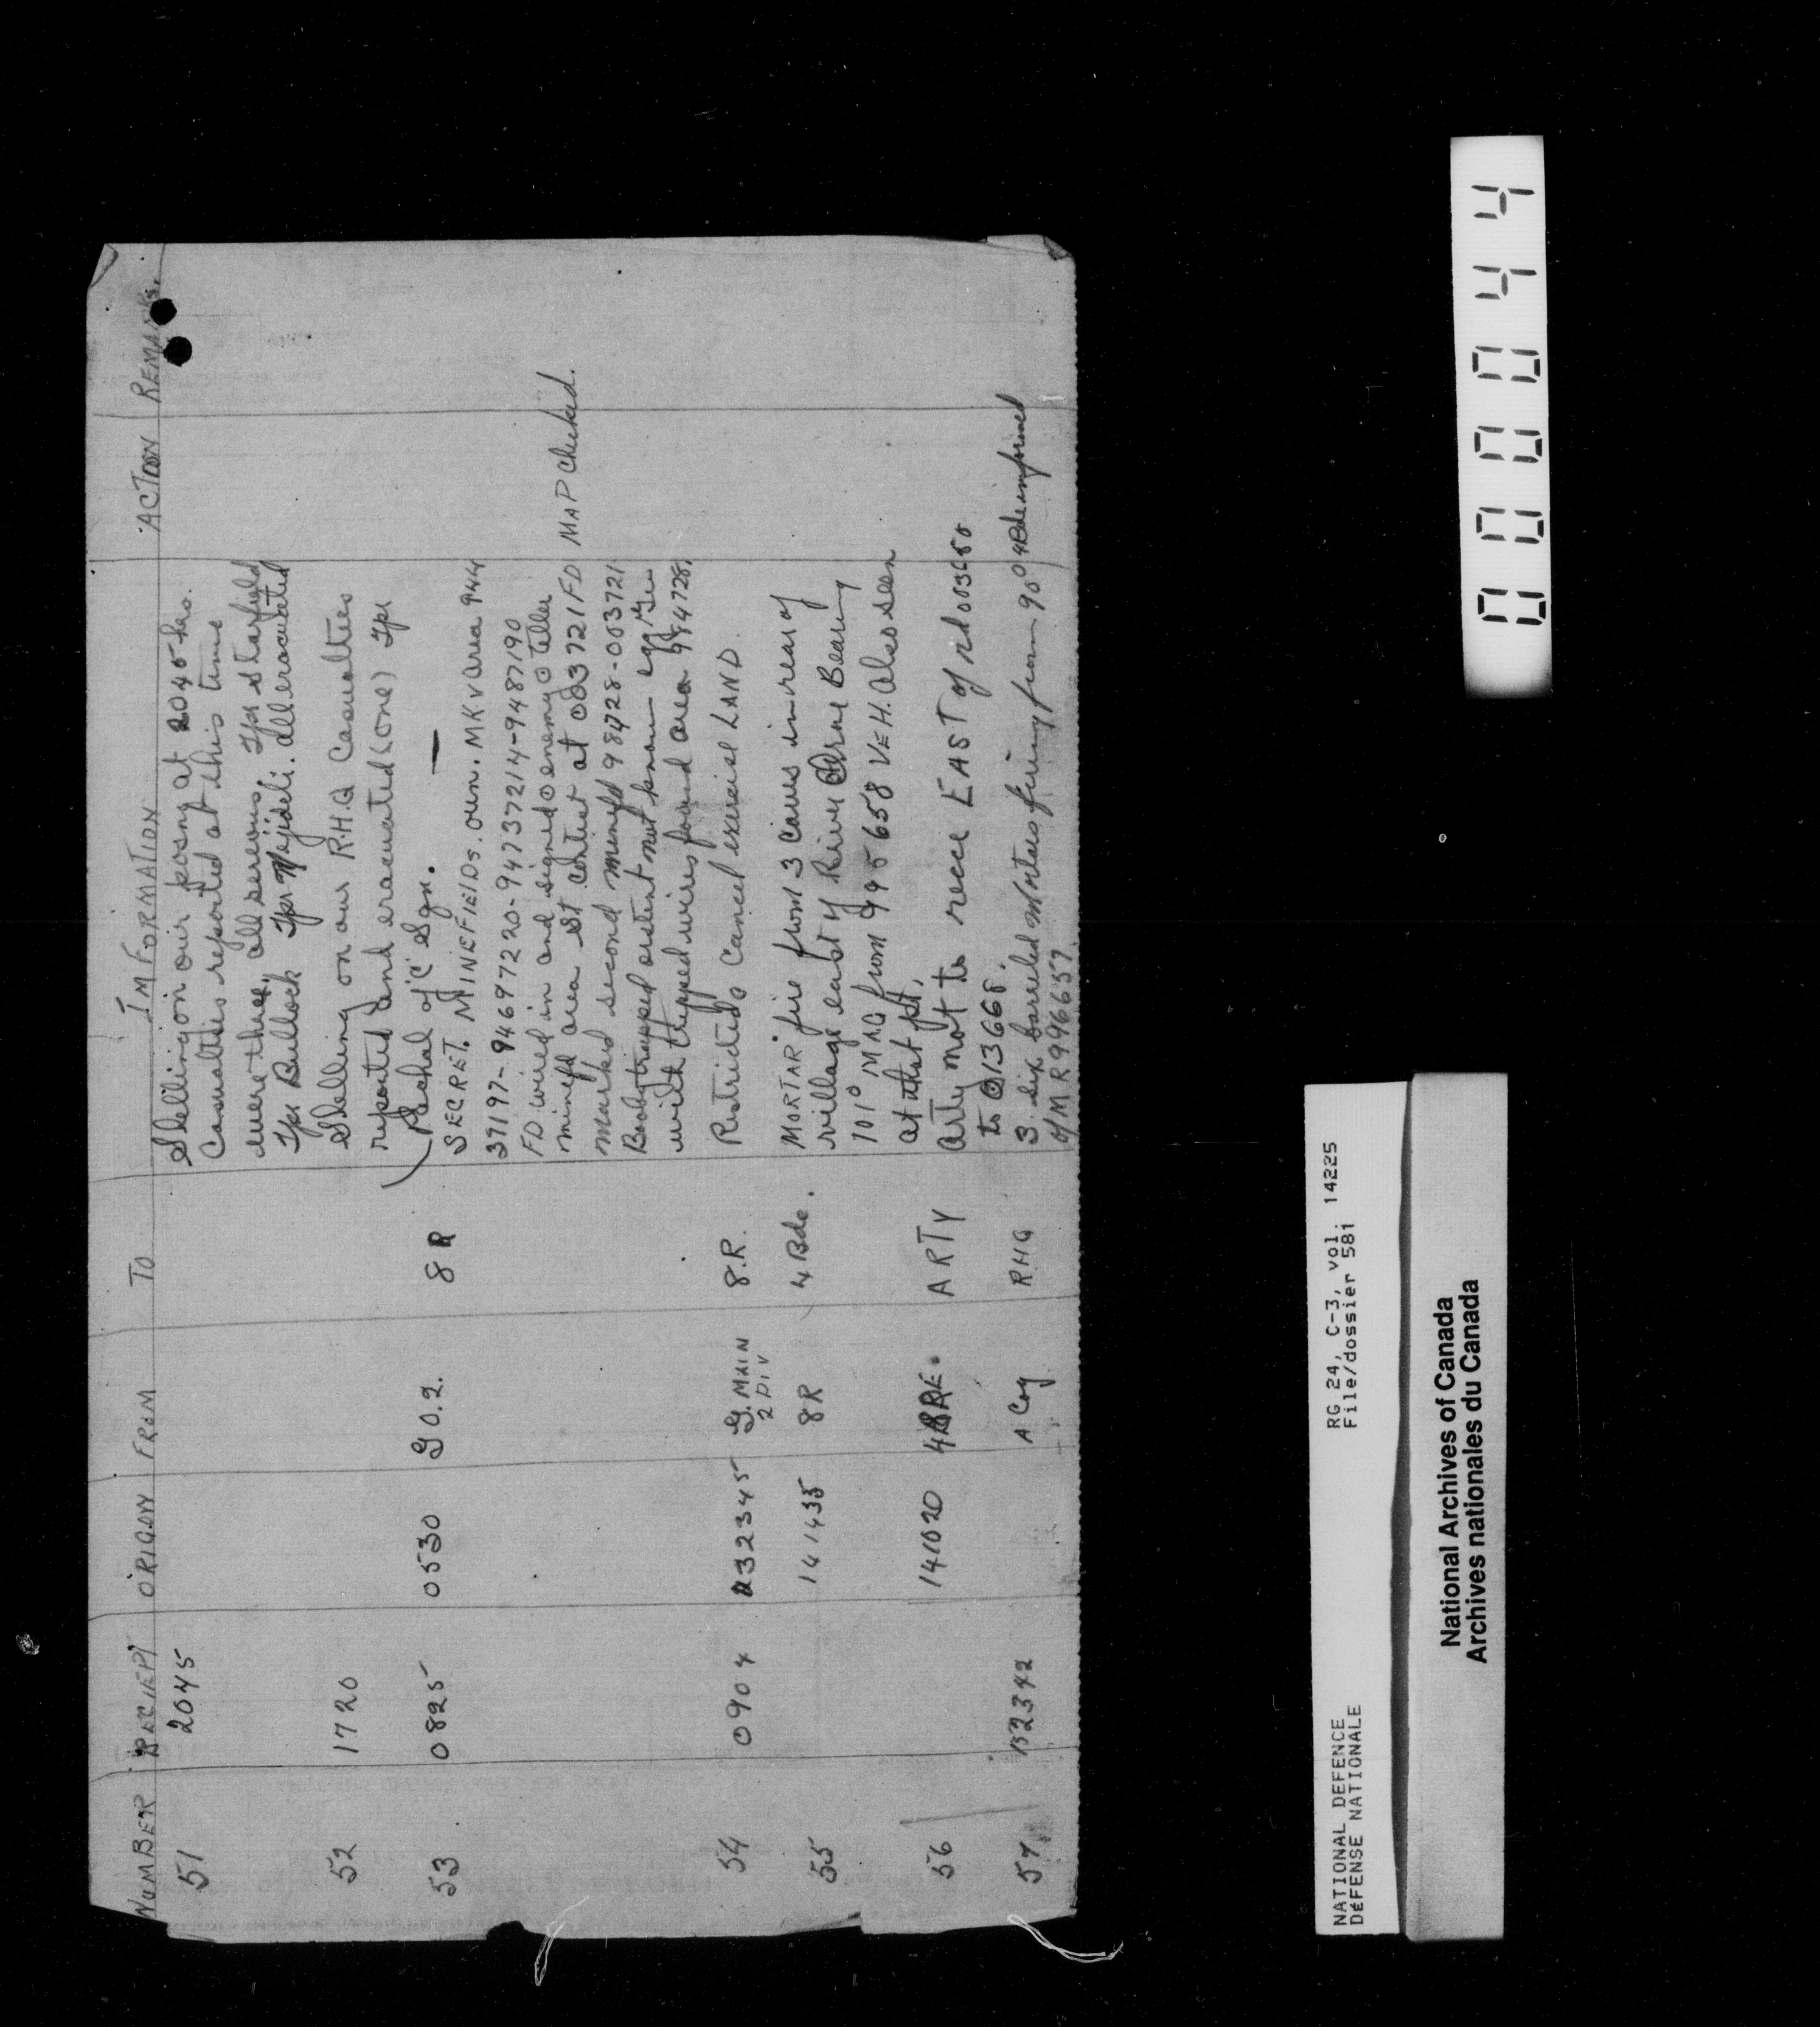 NUMBER RECIEPT ORIGON FROM TO IMFORMATION ACTION REMARKS.
51 2045 Shelling on our posng at 2045 hrs.
Casualties reported at this time
were three, all serious, Tpr Starfield
Tpr Bullock Tpr all evacuated
52 1720 Shelling on our R.H.Q Casualties
reported and evacuated (one) Tpr
Paschal of 'C' Sqn.
53 0825 0530 G O.2. 8 R SECRET. MINEFIELDs. own. MK V area 944
37197-94697220-94737214-9487190
FD wired in and signed ⊙ enemy ⊙ teller
minefd area St contest at 003721 FD MAP checked.
marked second minefd 984728-003721
Boobytrapped extent not known egg Gren
with tripped wires found area 984728.
54 0904 132345 G. MAIN 2 DIV 8.R. Restricted Cancel exercise LAND.
55 141435 8R 4 Bde. MORTAR fire from 3 Caves in rear of
village east of River Orne Bearing
101° MAG from 995658 VEH. also seen
at that pt,
56 141020 4BDE. ARTY Arty not to recce EAST of rd 003650
to 013668.
57 132342 A Coy RHQ 3. six barreled Mortars firing from 90° 4 Bde informed
of MR 996657.
000044
RG 24, C-3, vol. 14225
File/dossier 581
NATIONAL DEFENCE
DéFENSE NATIONALE
National Archives of Canada
Archives nationales du Canada